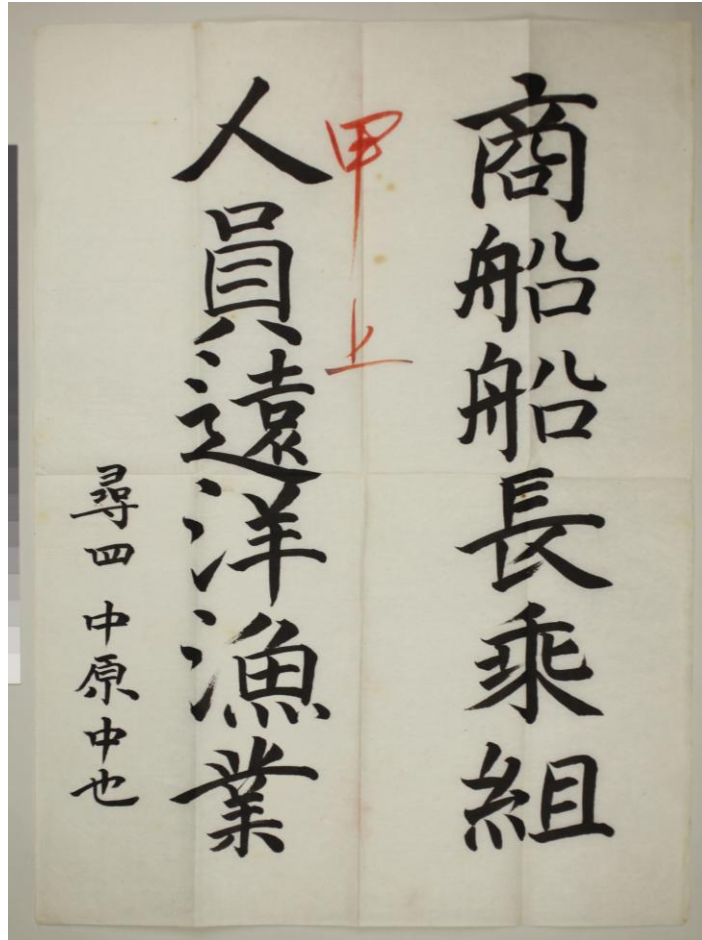 商船船長乘組
甲上
人員遠洋漁業
尋四 中原中也